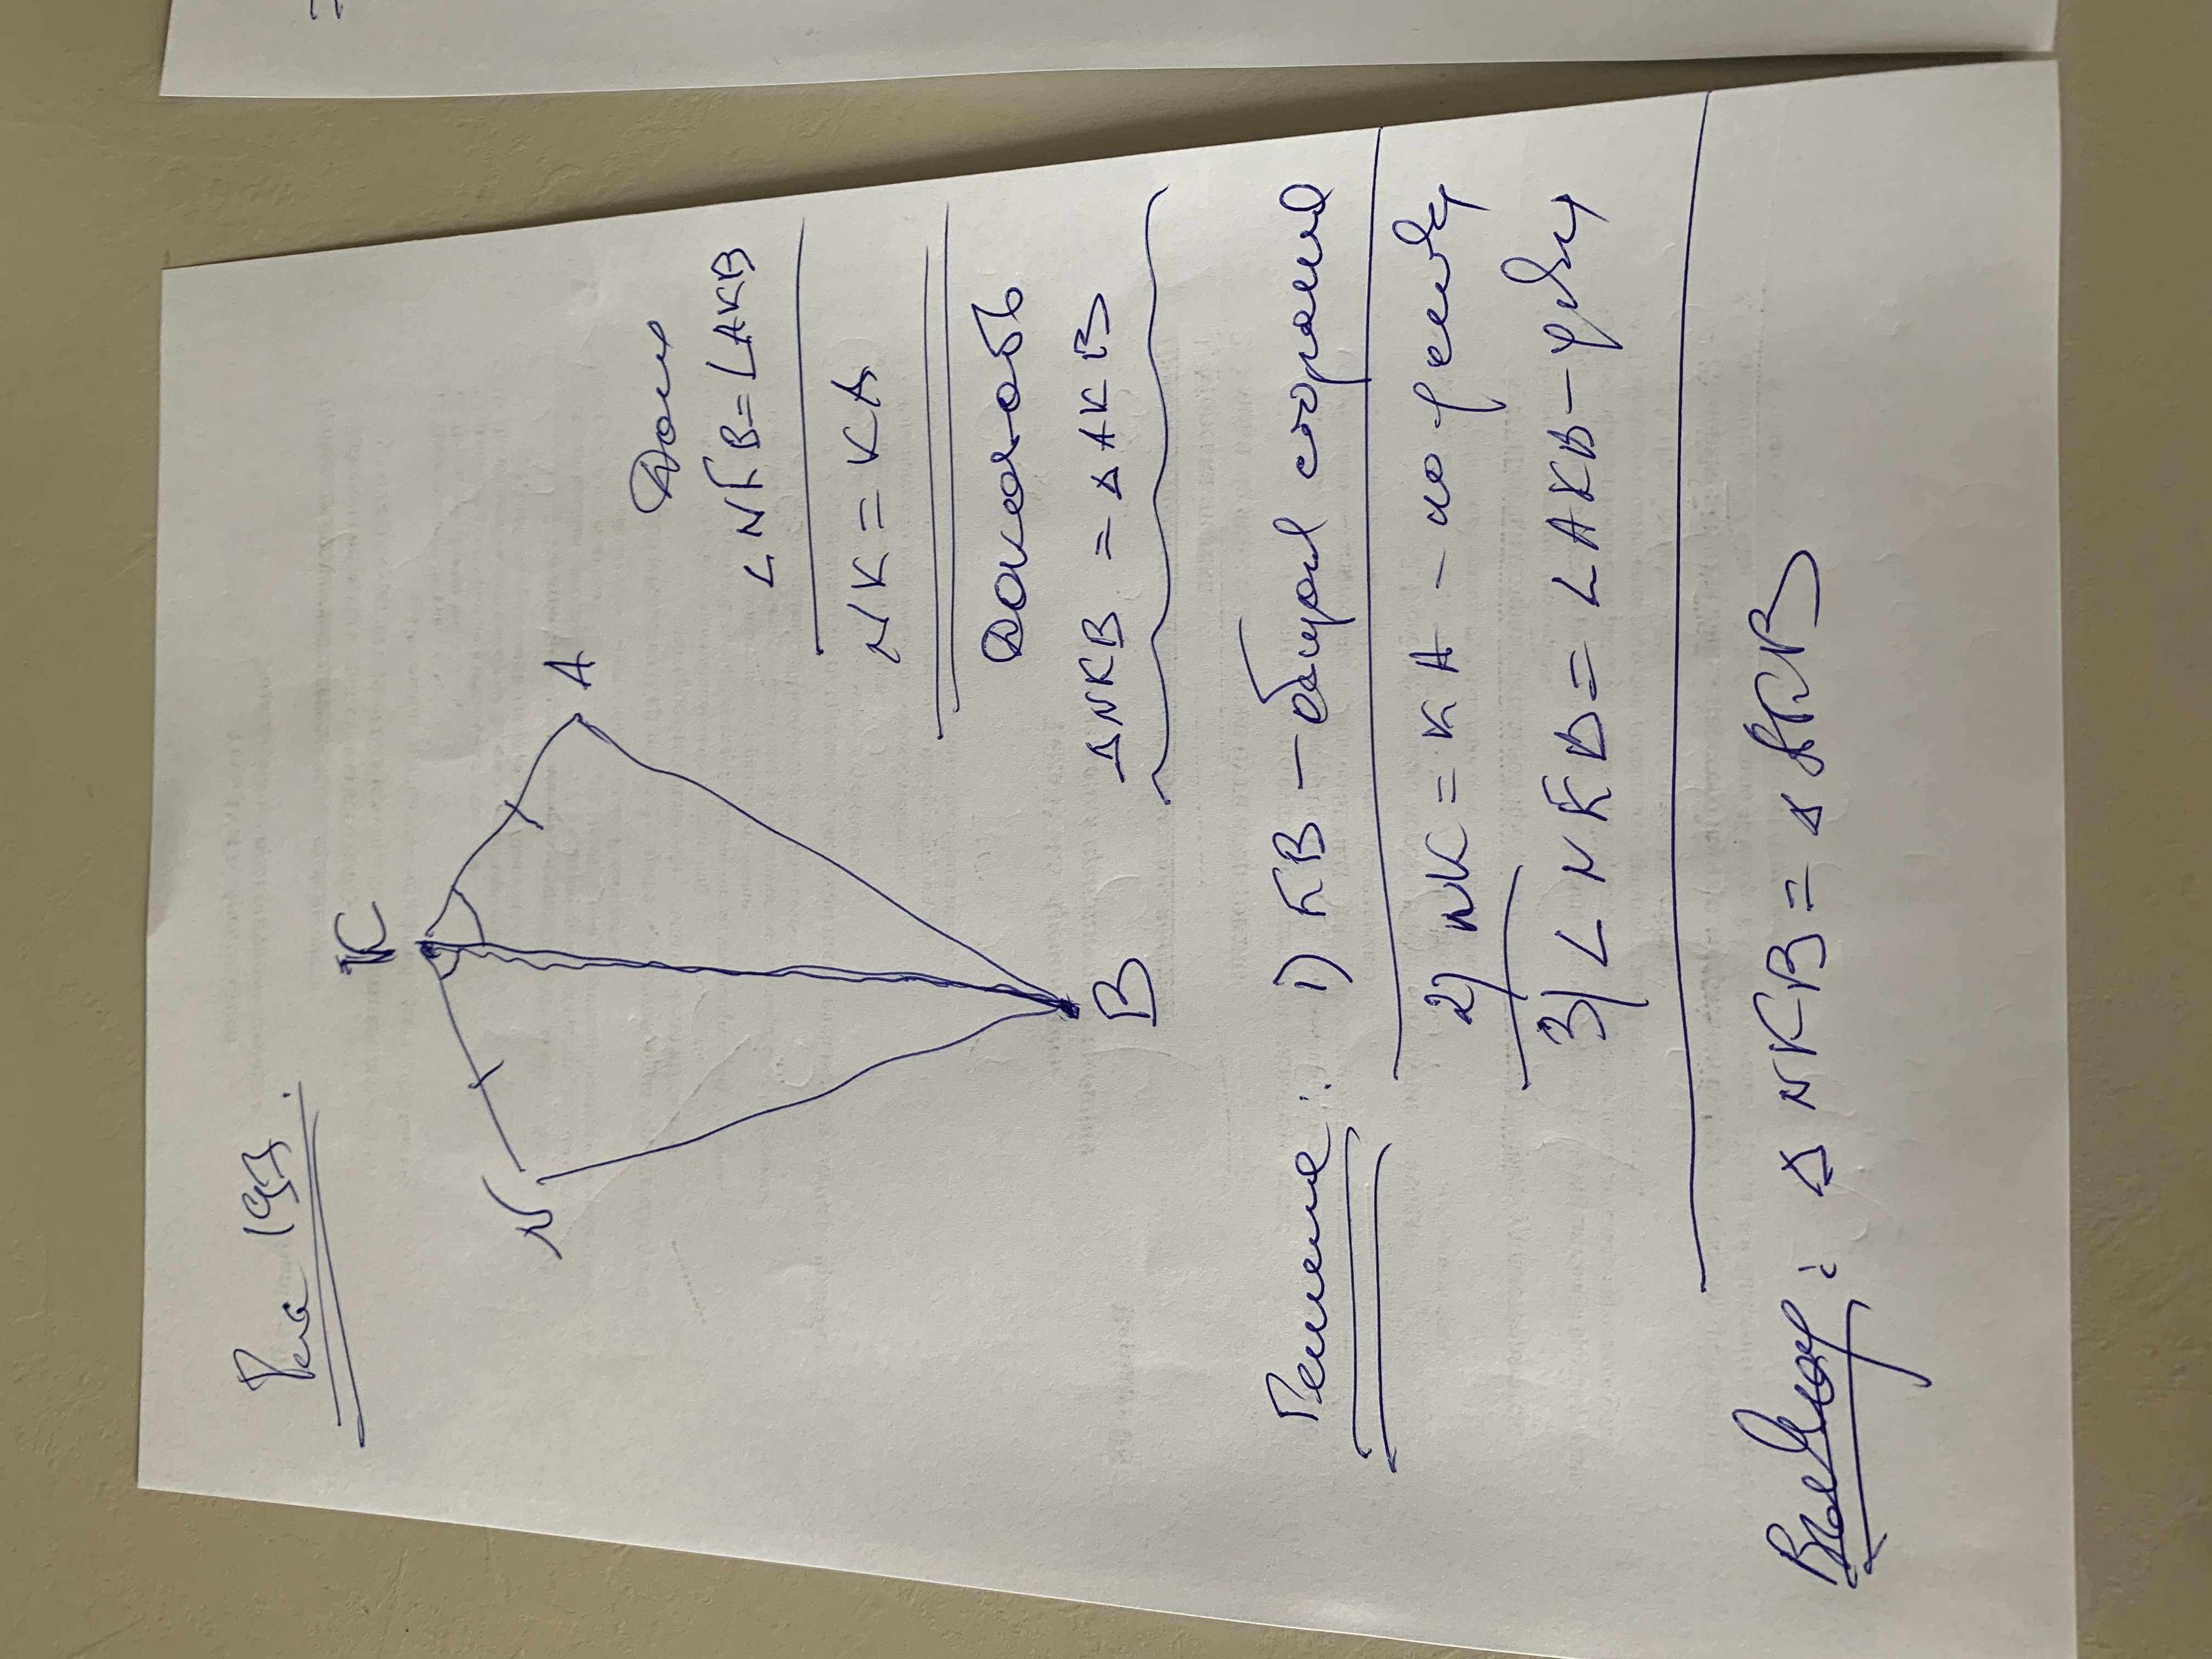 Рис 193.
K
N
A
B
Дано
∠NKB=∠AKB
NK = KA
Доказать
△NKB = △AKB
Решение: 1) KB – общая сторона
2) NK = KA – по
3) ∠NKB = ∠AKB –
△NKB = △AKB